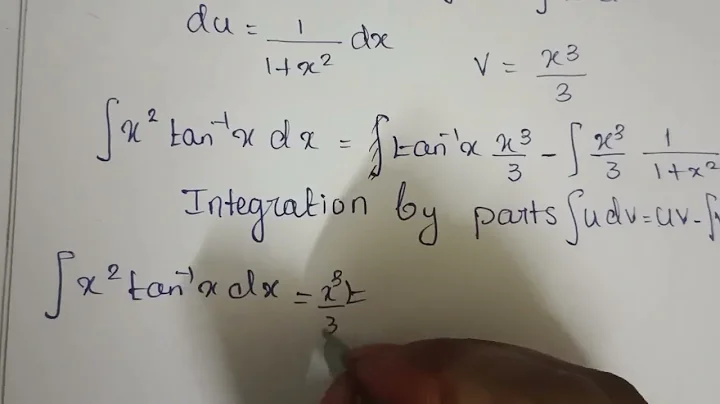 du = 1/(1+x²) dx
v = x³/3
∫x² tan⁻¹x dx = ∫tan⁻¹x x³/3 − ∫ x³/3 1/(1+x²)
Integration by parts ∫udv=uv-∫
∫x² tan⁻¹x dx = x³/3 t